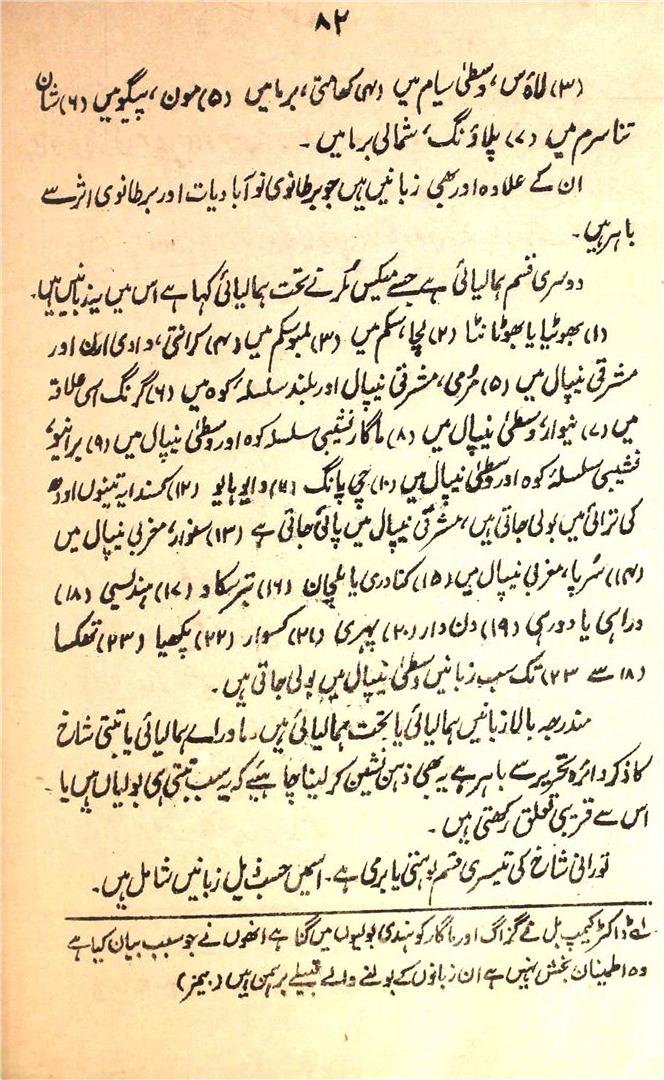 ۸۲
(۳) لاؤس، وسطیٰ سیام میں (۴) کھامتی، برما میں (۵) مون، پیگو میں (۶) شان
تناسرم میں (۷) پلاؤنگ، شمالی برما میں۔
ان کے علاوہ اور بھی زبانیں ہیں جو برطانوی نوآبادیات اور برطانوی اثر سے
باہر ہیں۔
دوسری قسم ہمالیائی ہے جسے میکس مُلر نے تحت ہمالیائی کہا ہے اس میں یہ زبانیں ہیں۔
(۱) بھوٹیا یا بھوٹانٹا (۲) لپچا، سکم میں (۳) لمبو سکم میں (۴) کرانتی، وادی ارن اور
مشرقی نیپال میں (۵) مُرمی، مشرقی نیپال اور بلند سلسلۂ کوہ میں (۶) گرنگ اسی علاقہ
میں (۷) نیوار، وسطیٰ نیپال میں (۸) ماگار نشیبی سلسلہ کوہ اور وسطیٰ نیپال میں (۹) براہیو،
نشیبی سلسلۂ کوہ اور وسطیٰ نیپال میں (۱۰) چی پانگ (۱۱) وایو یا ہایو (۱۲) کسندا یہ تینوں اودھ
کی ترائی میں بولی جاتی ہیں، مشرقی نیپال میں پائی جاتی ہے (۱۳) سنوار، مغربی نیپال میں
(۱۴) سُرپا، مغربی نیپال میں (۱۵) کنادری یا ملچان (۱۶) تبرسکاد (۱۷) ہندیسی (۱۸)
دراہی یا دورہی (۱۹) دن دار (۲۰) پہری (۲۱) کسوار (۲۲) پکھیا (۲۳) تھکسا
(۱۸ سے ۲۳) تک سب زبانیں وسطیٰ نیپال میں بولی جاتی ہیں۔
مندرجہ بالا زبانیں ہمالیائی یا تحت ہمالیائی ہیں۔ ماورائے ہمالیائی یا تبتی شاخ
کا ذکر دائرہ تحریر سے باہر ہے یہ بھی ذہن نشین کر لینا چاہیئے کہ یہ سب تبتی ہی بولیاں ہیں یا
اس سے قریبی تعلق رکھتی ہیں۔
تورانی شاخ کی تیسری قسم لوہتی یا بری ہے۔ اسمیں حسب ذیل زبانیں شامل ہیں۔
لے ڈاکٹر کیمپ بل نے گرانگ اور ماگار کو ہندی بولیوں میں گنا ہے انھوں نے جو سبب بیان کیا ہے
وہ اطمینان بخش نہیں ہے ان زبانوں کے بولنے والے قبیلے برہمن ہیں (بیمز)